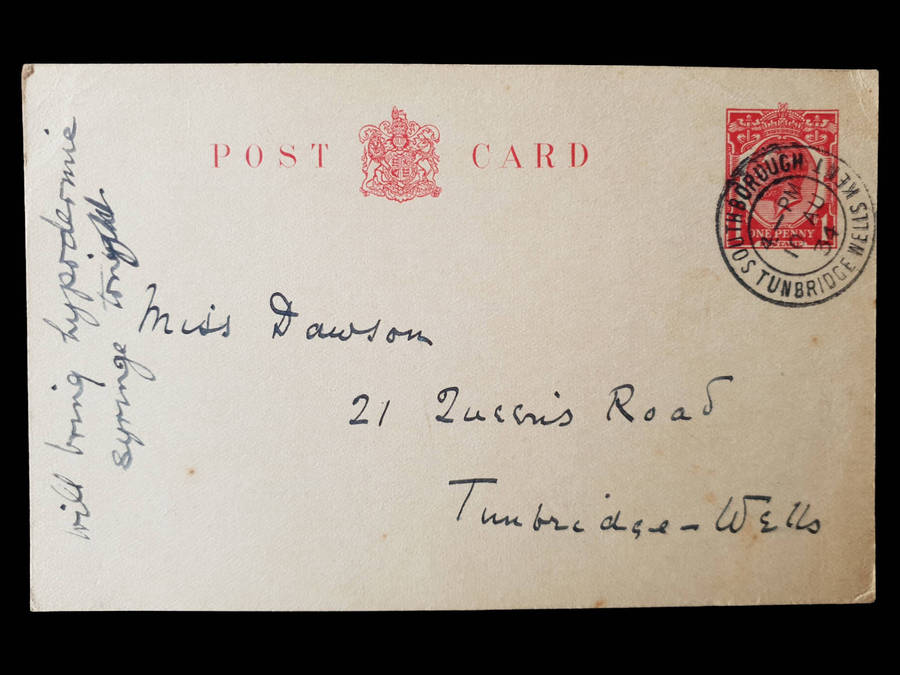 POST CARD
ONE PENNY
SOUTHBOROUGH
TUNBRIDGE WELLS KENT
4 - PM
10 AU
34
Miss Dawson
21 Queen's Road
Tunbridge-Wells
will bring hypodermic
syringe tonight